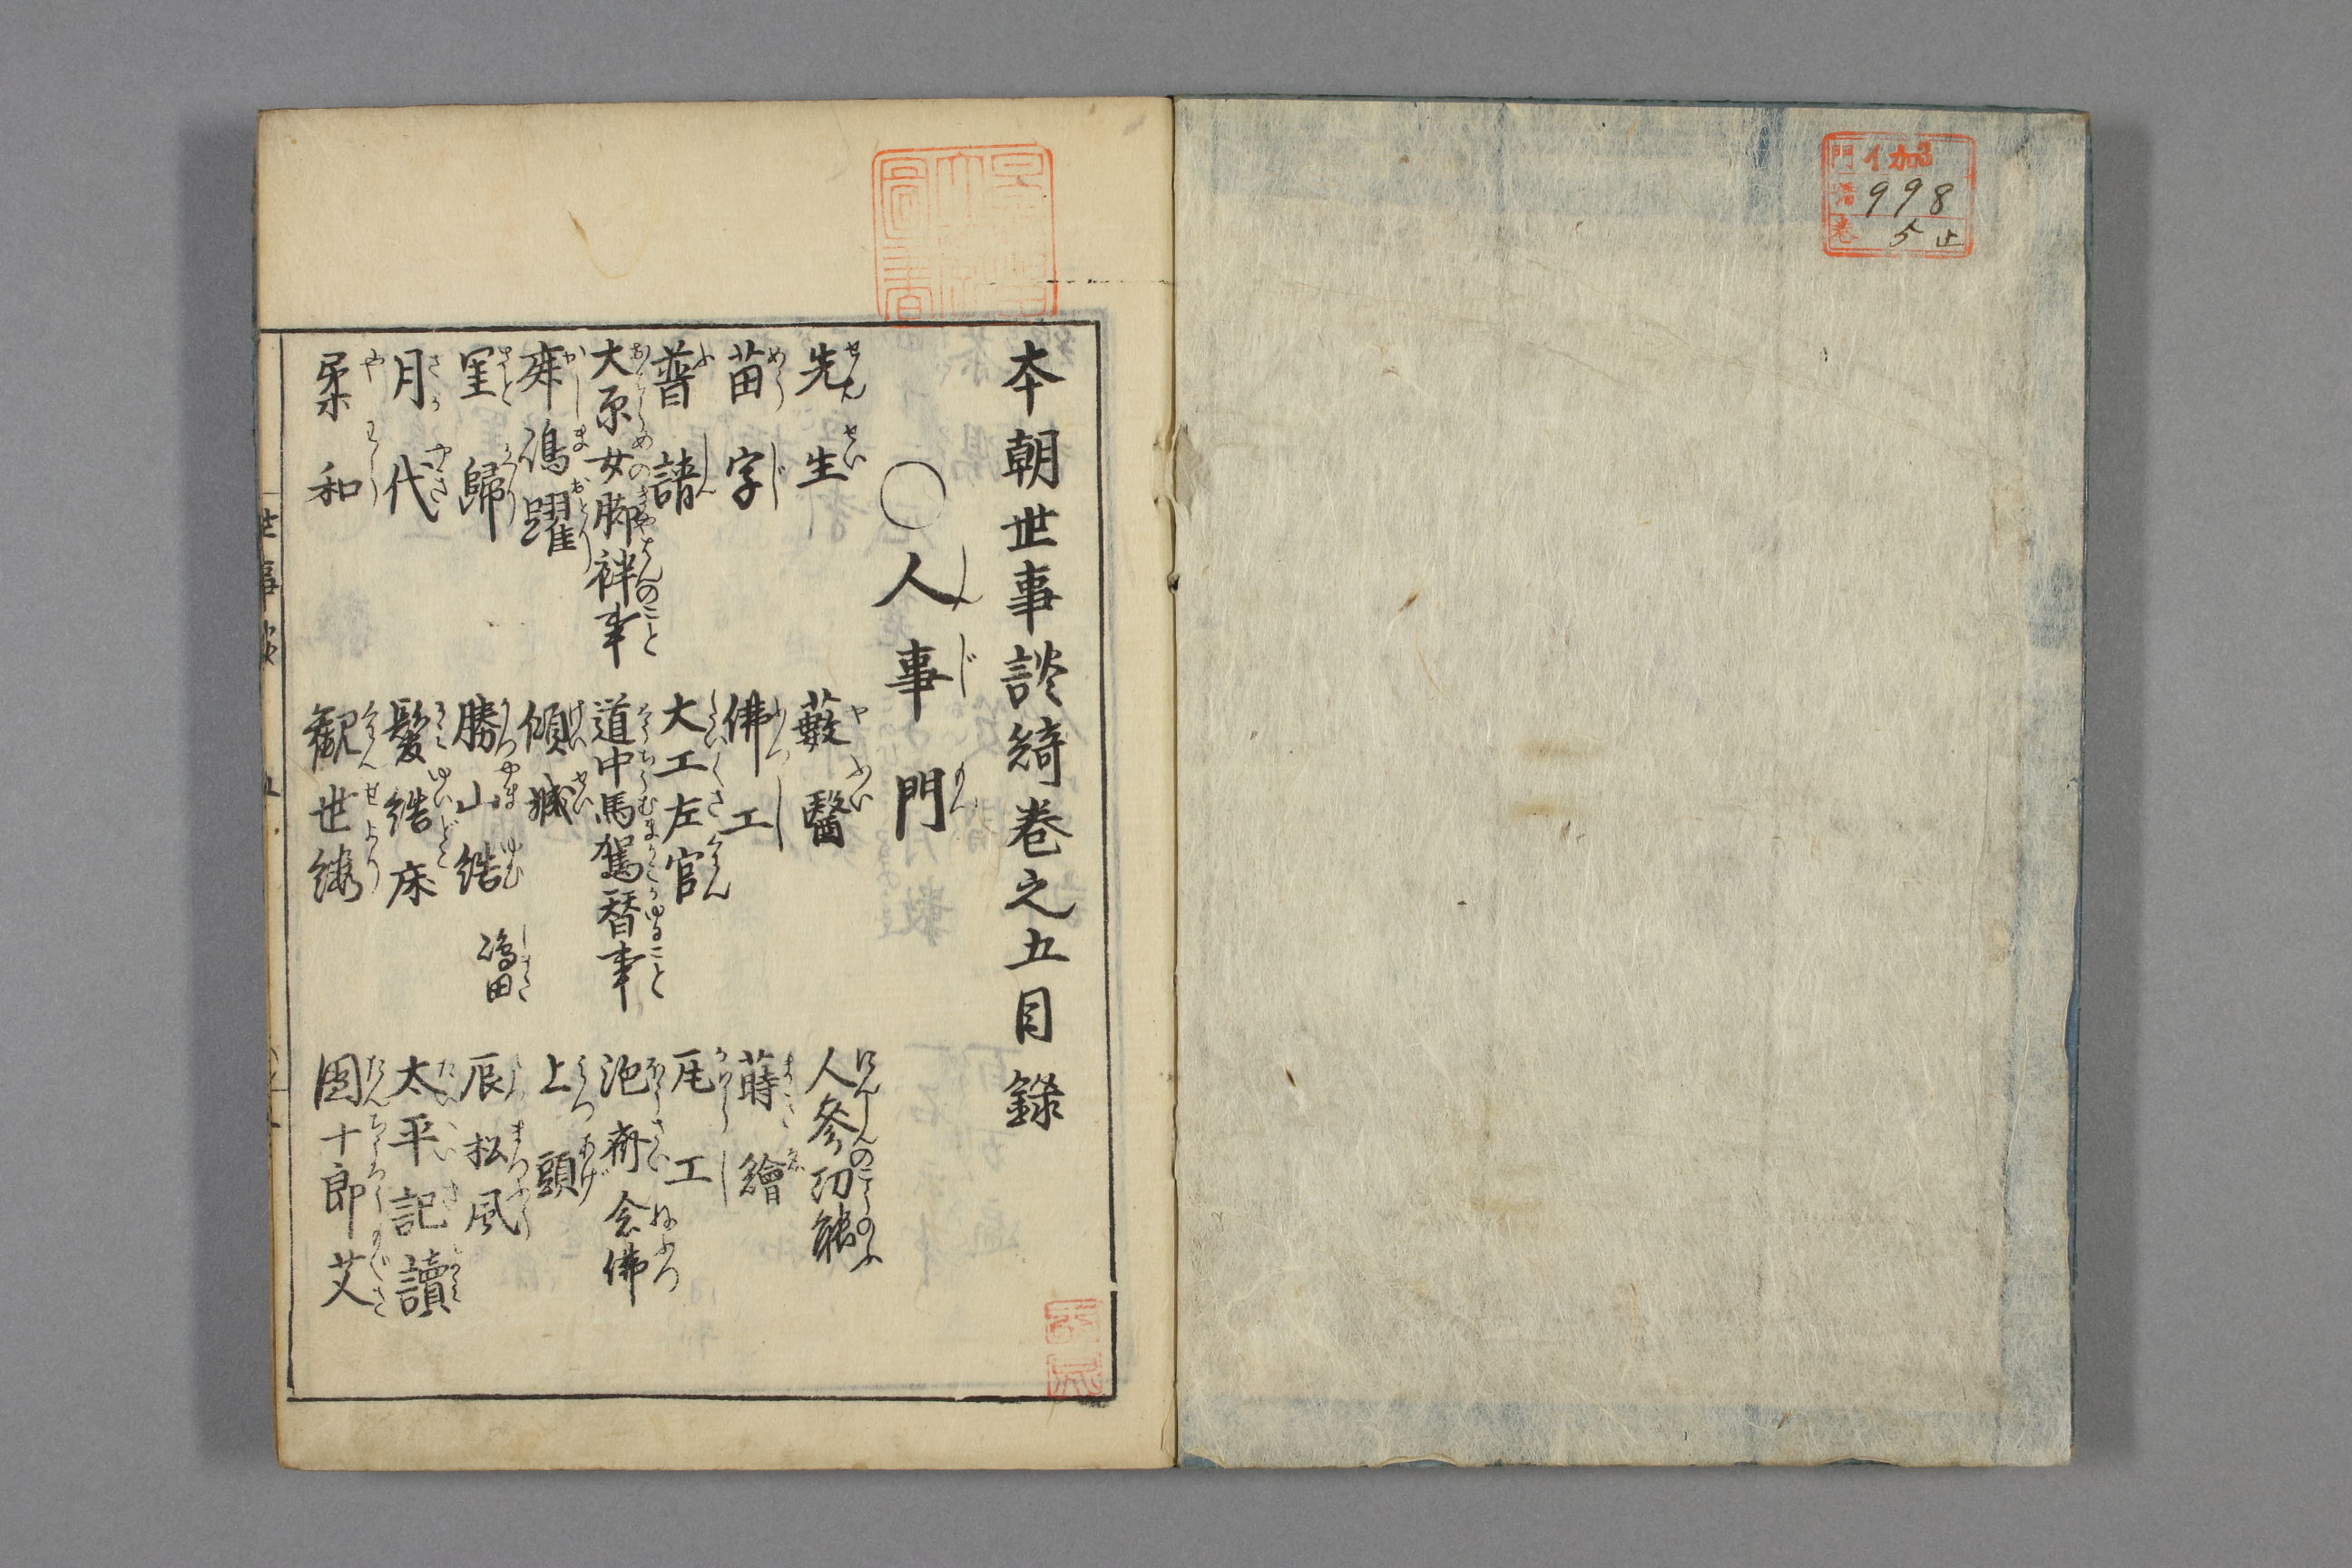 門 イ加3
号 998
巻 5止
本朝世事談綺巻之五目録
○人事門
先生 藪醫 人參功能
苗字 佛工 蒔繪
普請 大工左官 瓦工
大原女脚袢事 道中馬駕替事 泡斎念佛
鹿嶋躍 傾城 上頭
里歸 勝山結 嶋田 辰松風
月代 髪結床 太平記讀
柔和 観世縷 團十郎艾
世事談 五